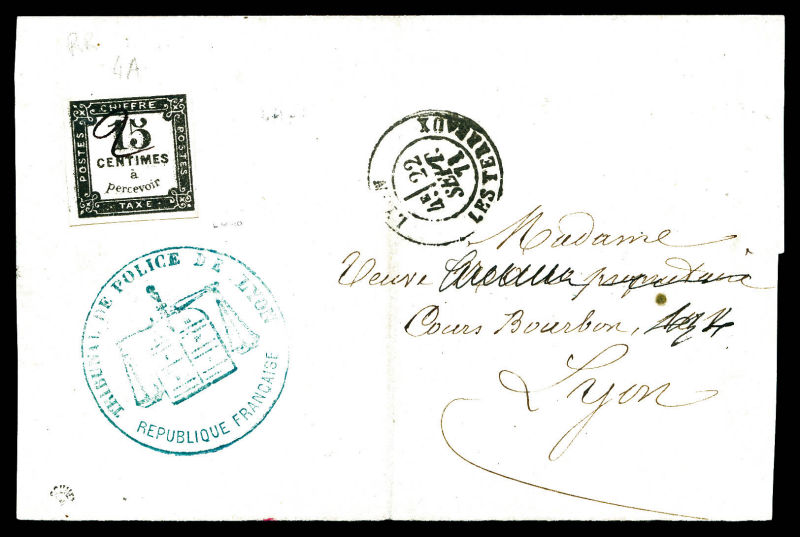 RR
4A
CHIFFRE
POSTES
15
CENTIMES
à
percevoir
POSTES
TAXE
LYON
LES TERREAUX
4E
22
SEPT.
71
TRIBUNAL DE POLICE DE LYON
REPUBLIQUE FRANÇAISE
Madame
Veuve propriétaire
Cours Bourbon,
Lyon